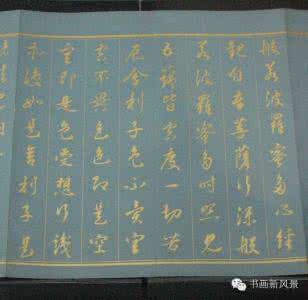 般若波羅蜜多心経
觀自在菩薩行深般
若波羅蜜多時照見
五蘊皆空度一切苦
厄舍利子色不異空
空不異色色即是空
空即是色受想行識
亦復如是舍利子是
书画新风景